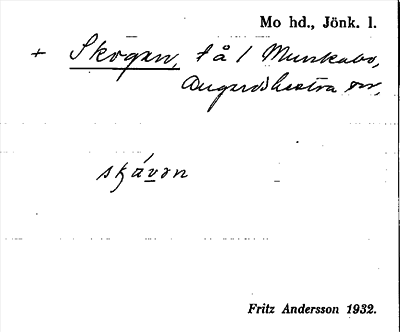 Mo hd., Jönk. l.
+ Skogen, t å / Munkabo,
Bugardhestra sn,
skávən
Fritz Andersson 1932.